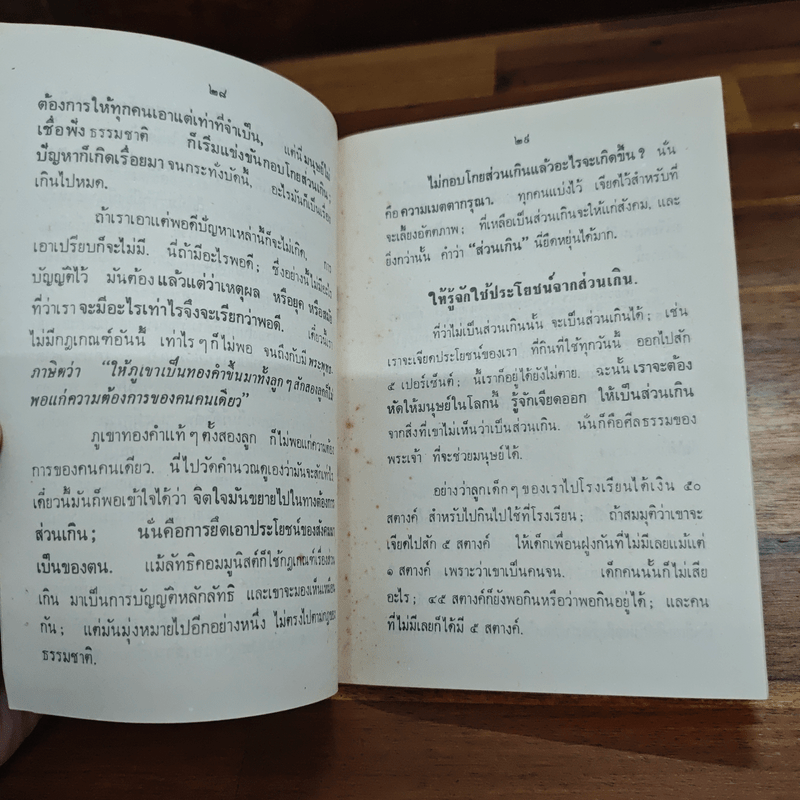 ๒๘
ต้องการให้ทุกคนเอาแต่เท่าที่จำเป็น, แต่นี่มนุษย์ไม่
เชื่อฟังธรรมชาติ ก็เริ่มแข่งขันกอบโกยส่วนเกิน;
ปัญหาก็เกิดเรื่อยมา จนกระทั่งบัดนี้, อะไรมันก็เป็นเรื่อง
เกินไปหมด.
ถ้าเราเอาแต่พอดีปัญหาเหล่านี้ก็จะไม่เกิด, การ
เอาเปรียบก็จะไม่มี. นี่ถ้ามีอะไรพอดี; ซึ่งอย่างนี้ไม่มีอะไร
บัญญัติไว้ มันต้อง แล้วแต่ว่าเหตุผล หรือยุค หรือสมัย
ที่ว่าเรา จะมีอะไรเท่าไรจึงจะเรียกว่าพอดี. เดี๋ยวนี้เรา
ไม่มีกฎเกณฑ์อันนี้ เท่าไรๆ ก็ไม่พอ จนถึงกับมี พระพุทธ-
ภาษิตว่า "ให้ภูเขาเป็นทองคำขึ้นมาทั้งลูกๆ สักสองลูกก็ไม่
พอแก่ความต้องการของคนคนเดียว"
ภูเขาทองคำแท้ๆ ตั้งสองลูก ก็ไม่พอแก่ความต้อง
การของคนคนเดียว. นี่ไปวัดคำนวณดูเองว่ามันจะสักเท่าไร
เดี๋ยวนี้มันก็พอเข้าใจได้ว่า จิตใจมันขยายไปในทางต้องการ
ส่วนเกิน; นั่นคือการยึดเอาประโยชน์ของสังคมมา
เป็นของตน. แม้ลัทธิคอมมูนิสต์ก็ใช้กฎเกณฑ์เรื่องส่วน
เกิน มาเป็นการบัญญัติหลักลัทธิ และเขาจะมองเห็นเหมือน
กัน; แต่มันมุ่งหมายไปอีกอย่างหนึ่ง ไม่ตรงไปตามกฎของ
ธรรมชาติ.
๒๙
ไม่กอบโกยส่วนเกินแล้วอะไรจะเกิดขึ้น? นั่น
คือ ความเมตตากรุณา. ทุกคนแบ่งไว้ เจียดไว้สำหรับที่
จะเลี้ยงอัตตภาพ; ที่เหลือเป็นส่วนเกินจะให้แก่สังคม, และ
ยิ่งกว่านั้น คำว่า "ส่วนเกิน" นี้ยืดหยุ่นได้มาก.
ให้รู้จักใช้ประโยชน์จากส่วนเกิน.
ที่ว่าไม่เป็นส่วนเกินนั้น จะเป็นส่วนเกินได้; เช่น
เราจะเจียดประโยชน์ของเรา ที่กินที่ใช้ทุกวันนี้ ออกไปสัก
๕ เปอร์เซ็นต์; นี้เราก็อยู่ได้ยังไม่ตาย. ฉะนั้น เราจะต้อง
หัดให้มนุษย์ในโลกนี้ รู้จักเจียดออก ให้เป็นส่วนเกิน
จากสิ่งที่เขาไม่เห็นว่าเป็นส่วนเกิน. นั่นก็คือศีลธรรมของ
พระเจ้า ที่จะช่วยมนุษย์ได้.
อย่างว่าลูกเด็กๆ ของเราไปโรงเรียนได้เงิน ๕๐
สตางค์ สำหรับไปกินไปใช้ที่โรงเรียน; ถ้าสมมุติว่าเขาจะ
เจียดไปสัก ๕ สตางค์ ให้เด็กเพื่อนฝูงกันที่ไม่มีเลยแม้แต่
๑ สตางค์ เพราะว่าเขาเป็นคนจน. เด็กคนนั้นก็ไม่เสีย
อะไร; ๔๕ สตางค์ก็ยังพอกินหรือว่าพอกินอยู่ได้; และคน
ที่ไม่มีเลยก็ได้มี ๕ สตางค์.